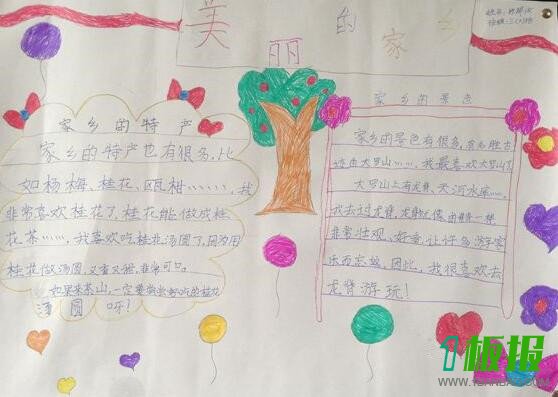 美丽的家乡
家乡的特产
家乡的特产也有很多，比
如杨梅、桂花、瓯柑……，我
非常喜欢桂花了，桂花能做成桂
花茶……，我喜欢吃桂花汤圆了，因为用
桂花做汤圆，又香又甜，非常可口。
如果来茶山，一定要尝尝好吃的桂花
汤圆呀！
家乡的景色
家乡的景色有很多，有名胜古
迹由大罗山……，我最喜欢大罗山了
大罗山上有龙脊、天河水库……，
我去过龙脊，龙脊就像曲
非常壮观、好奇，让许多游客
乐而忘返，因此，我很喜欢去
龙脊游玩！
1板报